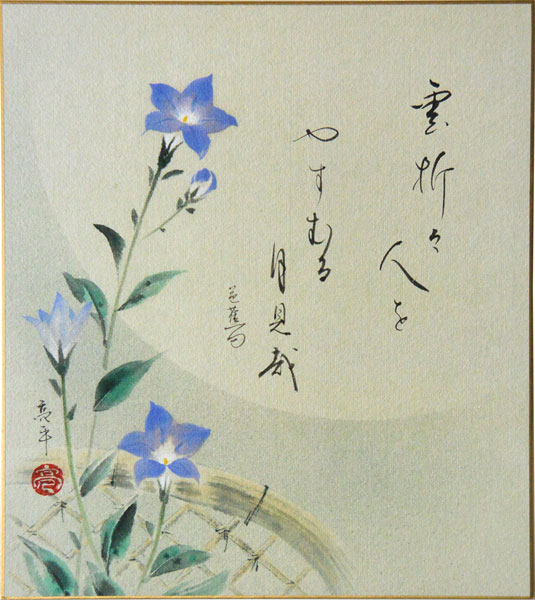 雲折々人を
やすむる
月見哉
芭蕉句
亮平
亮